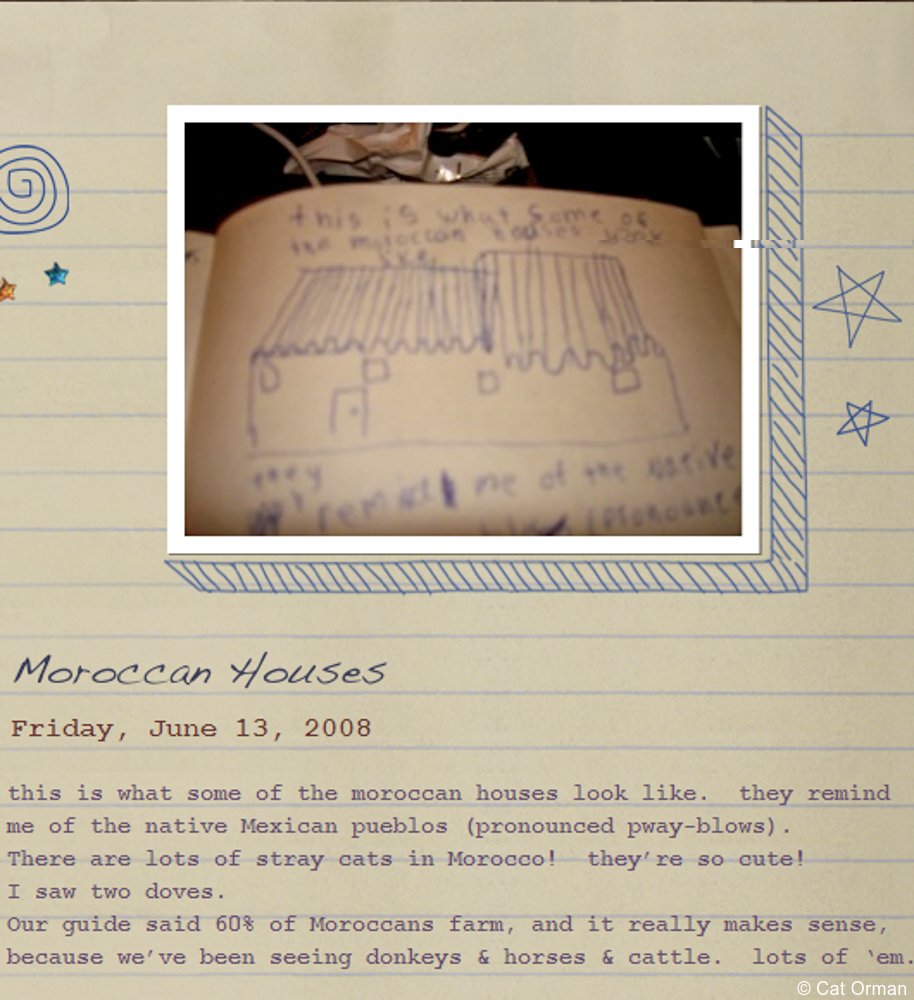 this is what some of
the moroccan houses look
like.
they
remind me of the native
(pronounc
Moroccan Houses
Friday, June 13, 2008
this is what some of the moroccan houses look like.  they remind
me of the native Mexican pueblos (pronounced pway-blows).
There are lots of stray cats in Morocco!  they’re so cute!
I saw two doves.
Our guide said 60% of Moroccans farm, and it really makes sense,
because we’ve been seeing donkeys & horses & cattle.  lots of ‘em.
© Cat Orman